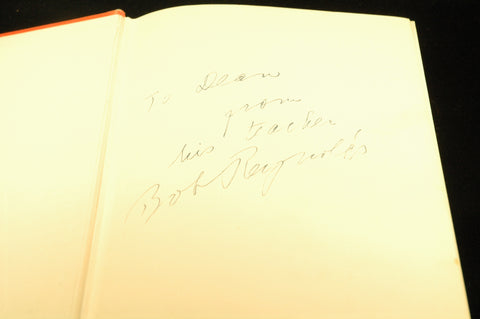 To Deane
from
his Father
Bob Reynolds